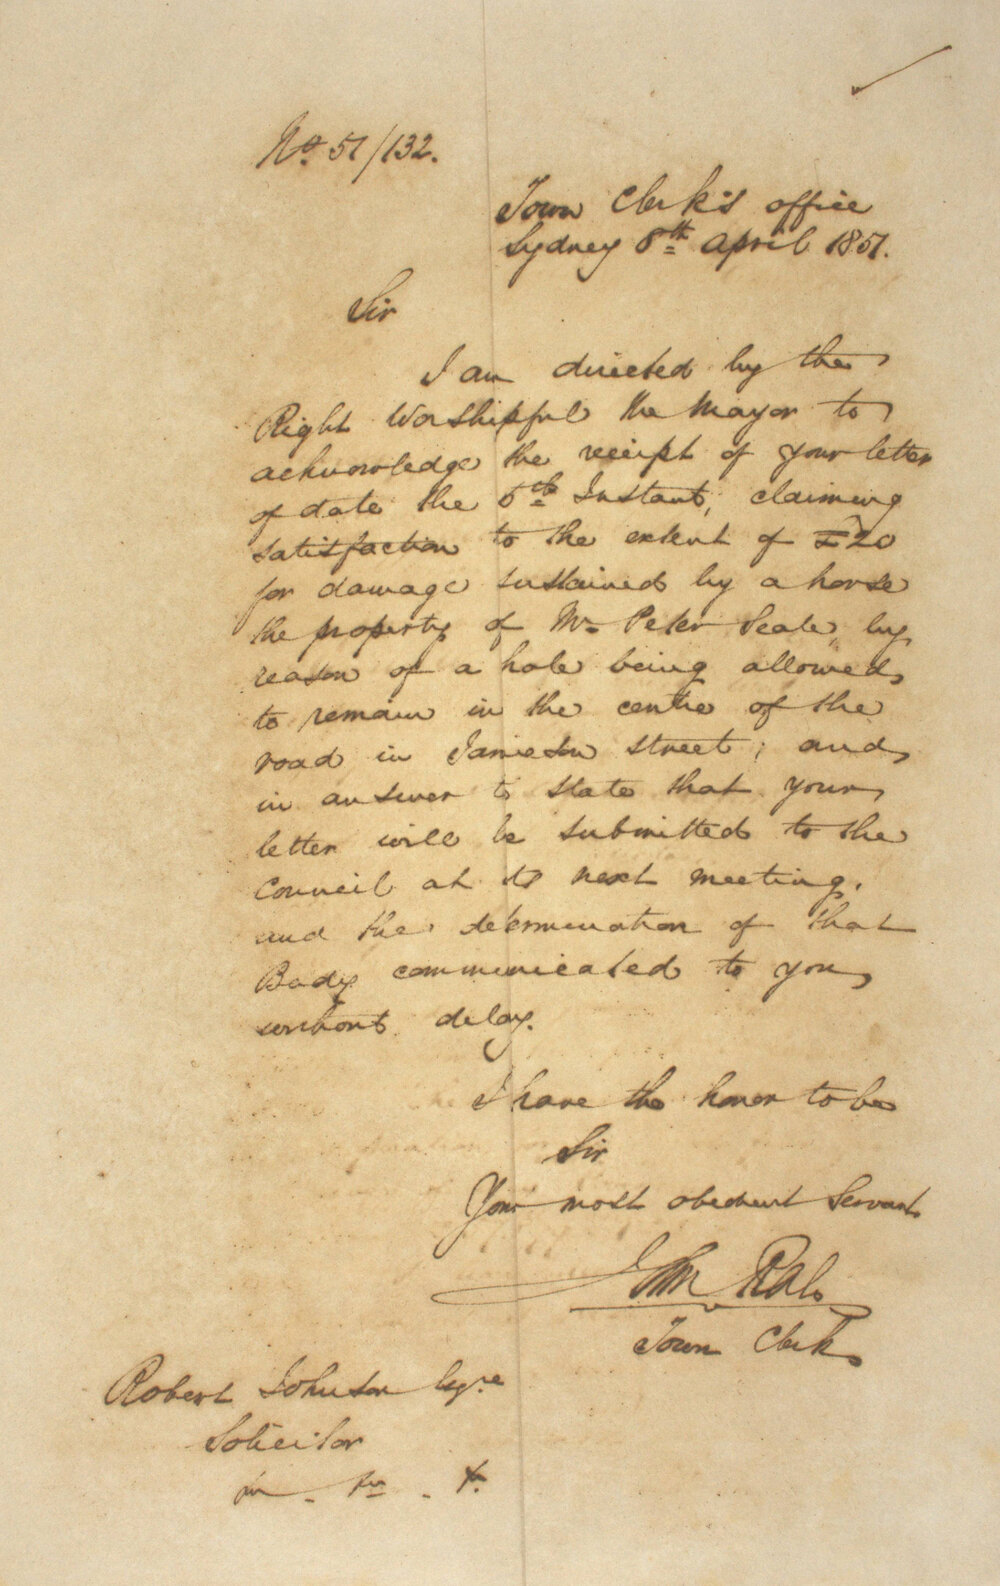 No. 51/132.
Town Clerk's office
Sydney 8th April 1851.
Sir
I am directed by the
Right Worshipful the Mayor to
acknowledge the receipt of your letter
of date the 5th Instant, claiming
satisfaction to the extent of £20
for damage sustained by a horse
the property of Mr Peter Seale, by
reason of a hole being allowed
to remain in the centre of the
road in Jamieson Street; and
in answer to state that your
letter will be submitted to the
Council at its next meeting.
and the determination of that
Body communicated to you
without delay.
I have the honor to be
Sir
Your most obedient Servant
John Rae
Town Clerk
Robert Johnson Esqre
Solicitor